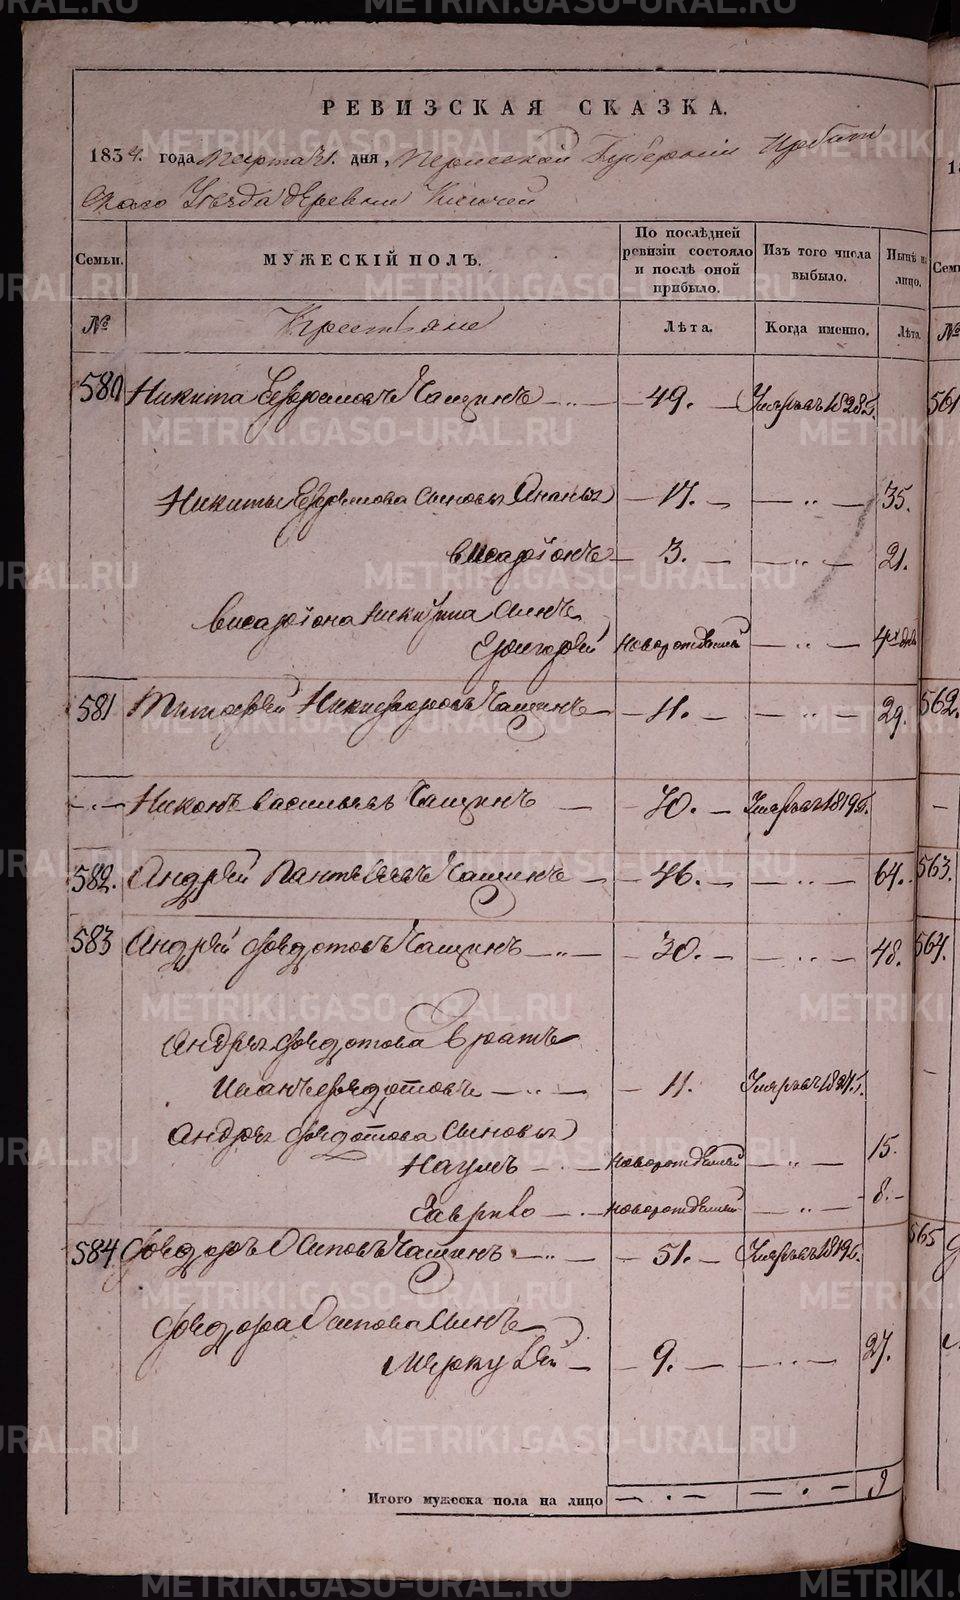 РЕВИЗСКАЯ СКАЗКА.
1834. года Марта 31. дня, Пермской Губернии Ирбит
скаго Уезда деревни
Семьи. МУЖЕСКІЙ ПОЛЪ. По послѣдней ревизіи состояло и послѣ оной прибыло. Изъ того числа выбыло. Нынѣ на лицо. Семьи
№ Крестьяне Лѣта. Когда именно. Лѣта. №
580 Никита Ефремовъ Чащинъ — 49. — Умеръ въ 1828 г. 561
Никиты Ефремова сыновья Ананья — 17. — — „ — 35.
Висаріонъ — 3. — — „ — 21.
Висаріона Никитина сынъ
Григорей Новорожденной — „ — 4
581 Тимофей Никифоровъ Чащинъ — 11. — — „ — 29. 562.
— „ — Никонъ Васильевъ Чащинъ — 70. — Умеръ въ 1819 г.
582. Андрей Пантелѣевъ Чащинъ — 46. — — „ — 64. 563.
583 Андрей Федотовъ Чащинъ — „ — — 30. — — „ — 48. 564.
Андрея Федотова Братъ
Иванъ Федотовъ — „ — — 11. Умеръ въ 1824 г.
Андрея Федотова сыновья
Наумъ — „ — Новорожденной — „ — 15.
Гаврило — „ — Новорожденной — „ — 8. —
584 Федоръ Осиповъ Чащинъ — „ — — 51. — Умеръ въ 1819 г. 565
Федора Осипова сынъ
Меркулей — — 9. — — „ — 27.
Итого мужеска пола на лицо — „ — — „ — 9
METRIKI.GASO-URAL.RU